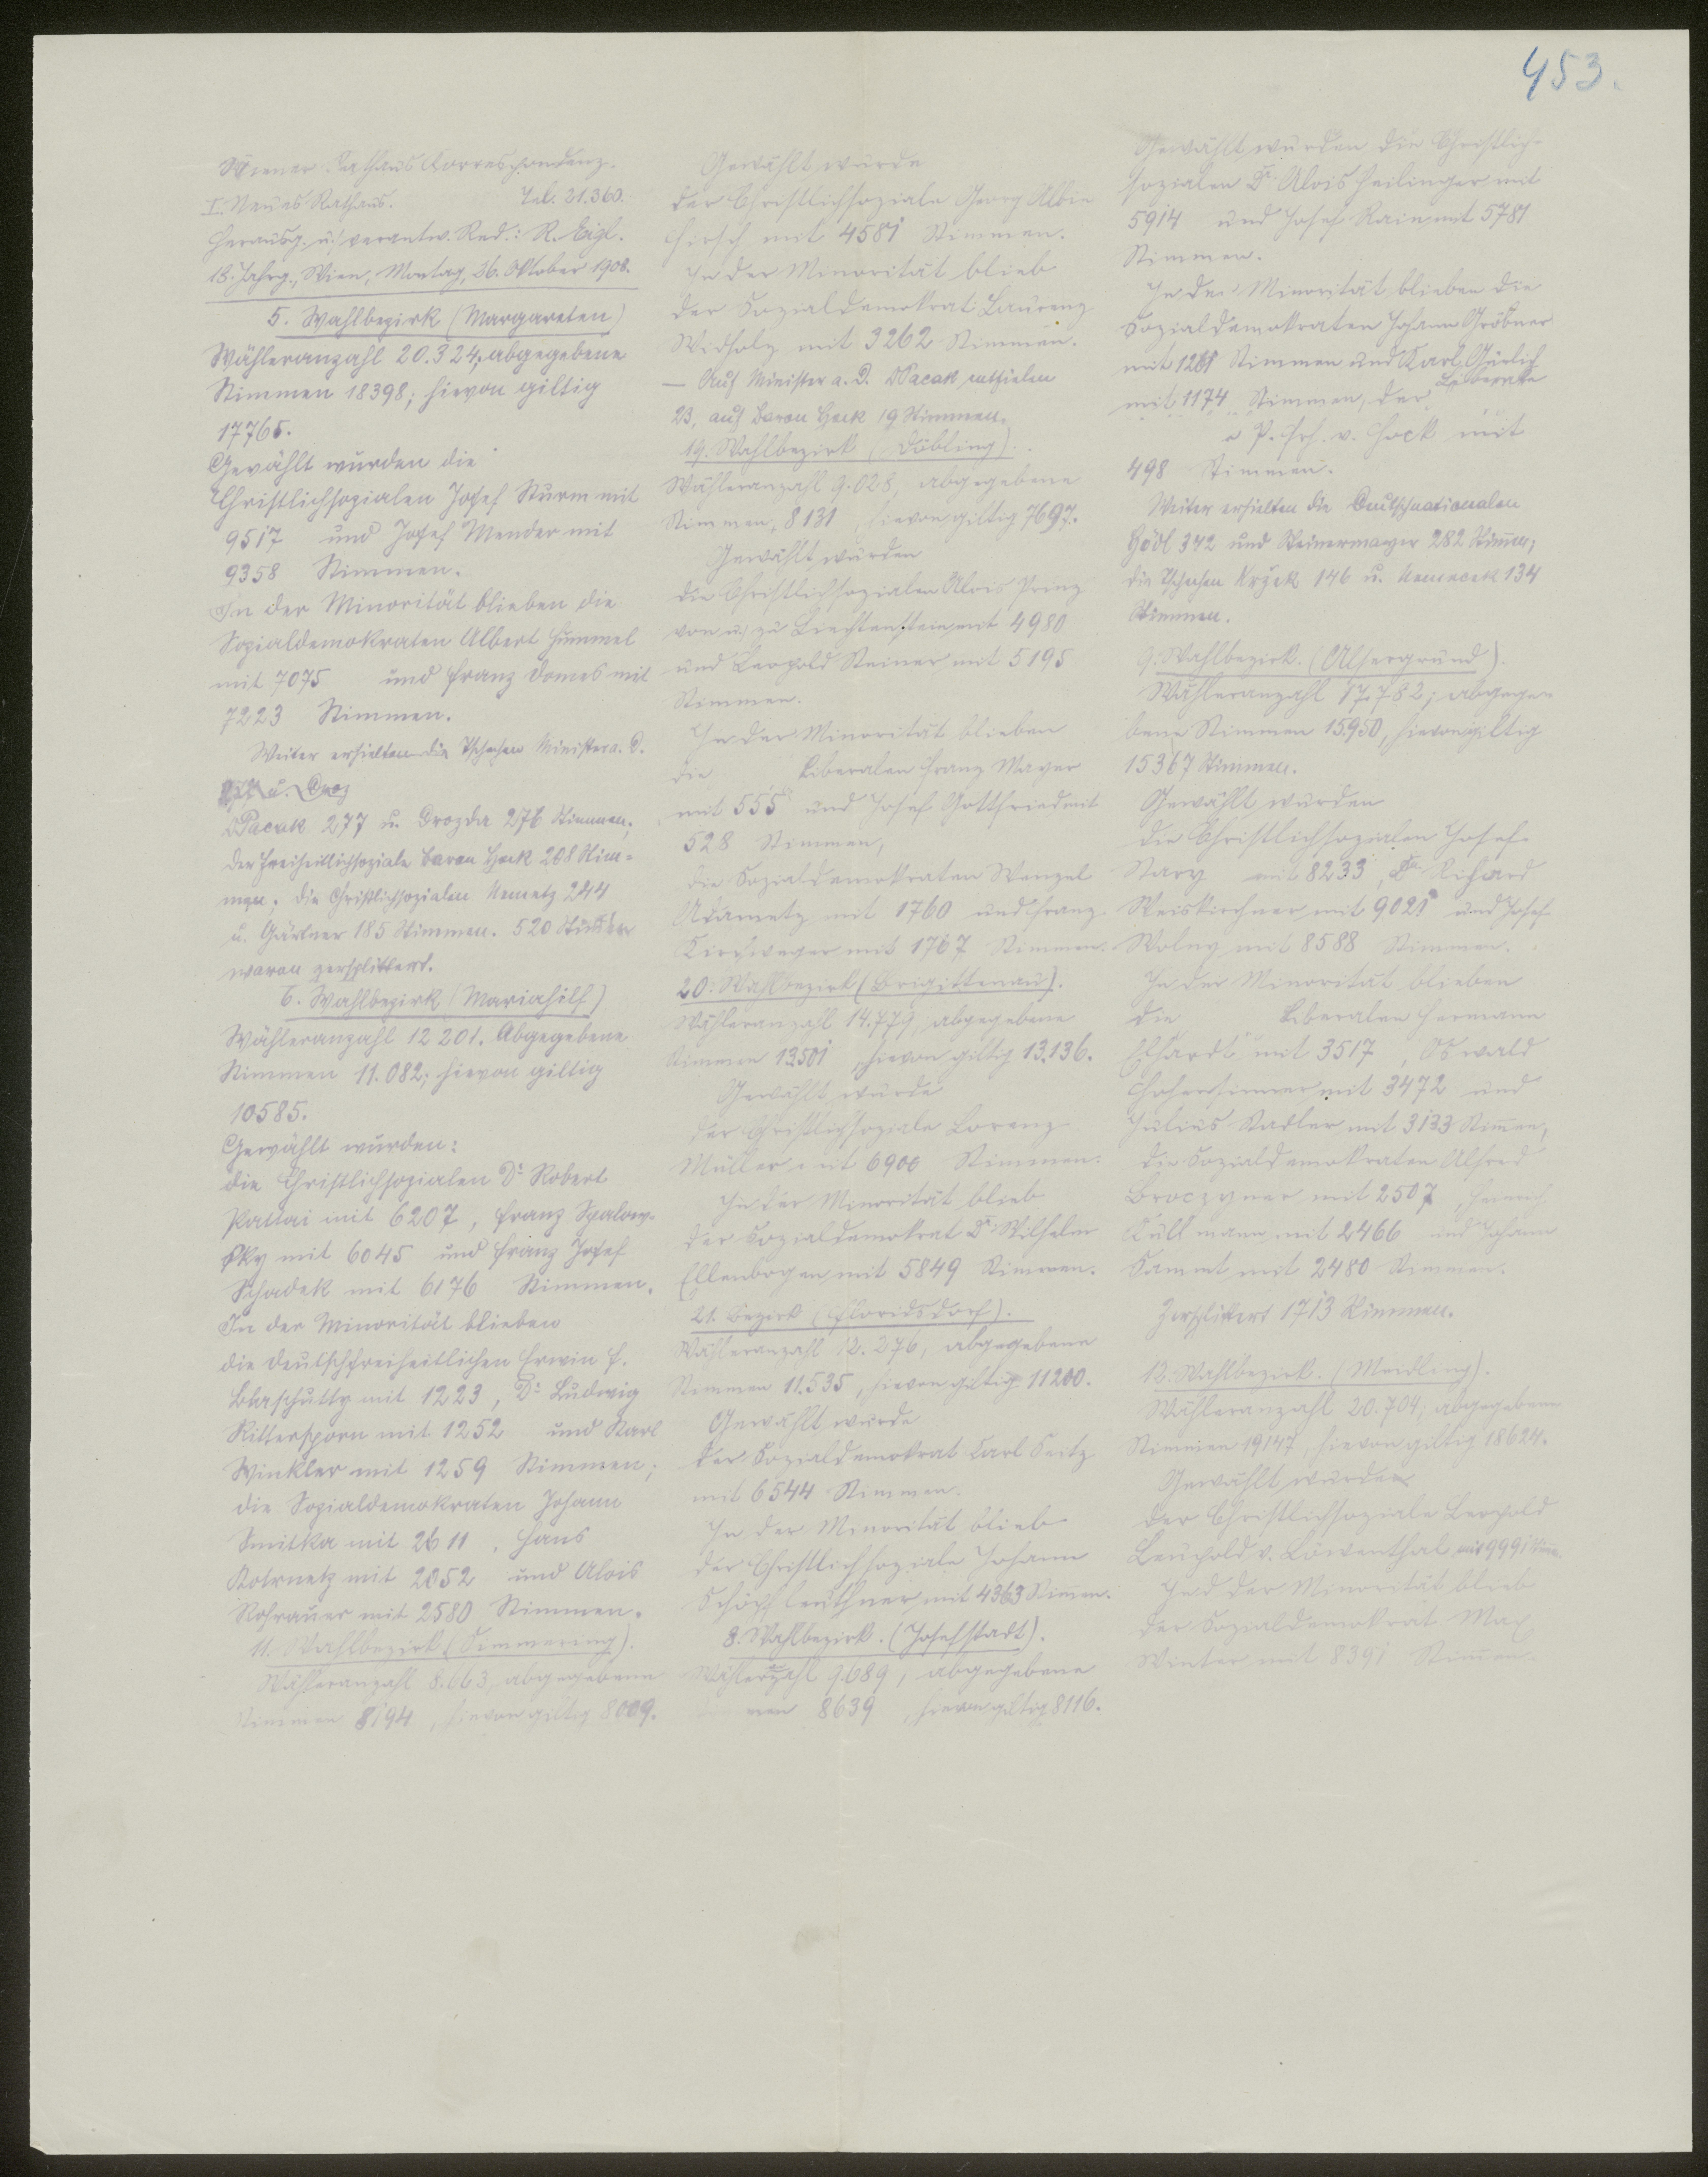 453.
Wiener Rathaus Correspondenz.
I. Neues Rathaus. Tel. 21.360.
Herausg. u. verantw. Red.: R. Eigl.
18. Jahrg., Wien, Montag, 26. Oktober 1908.
5. Wahlbezirk (Margareten)
Wähleranzahl 20.324; abgegebene
Stimmen 18398; hievon giltig
17765.
Gewählt wurden die
Christlichsozialen Josef Sturm mit
9517 und Josef Mender mit
9358 Stimmen.
In der Minorität blieben die
Sozialdemokraten Albert Hummel
mit 7075 und Franz Domes mit
7223 Stimmen.
Weiter erhielten die Tschechen Minister a. D.
Pacak 277 u. Drozda 276 Stimmen,
der Freiheitlichsoziale Baron Hock 208 Stim-
men; die Christlichsozialen Nemetz 244
u. Gärtner 185 Stimmen. 520 Stimmen
waren zersplittert.
6. Wahlbezirk (Mariahilf)
Wähleranzahl 12201. Abgegebene
Stimmen 11.082; hievon giltig
10585.
Gewählt wurden:
die Christlichsozialen Dr Robert
Pattai mit 6207, Franz Spalow-
sky mit 6045 und Franz Josef
Schadek mit 6176 Stimmen.
In der Minorität blieben
die Deutschfreiheitlichen Erwin F.
mit 1223, Dr Ludwig
Rittersporn mit 1252 und Karl
Winkler mit 1259 Stimmen;
die Sozialdemokraten Johann
Smitka mit 2611, Hans
mit 2052 und Alois
Rohrauer mit 2580 Stimmen.
11. Wahlbezirk (Simmering).
Wähleranzahl 8.663, abgegebene
Stimmen 8194, hievon giltig 8009.
Gewählt wurde
der Christlichsoziale Georg Albin
Hirsch mit 4581 Stimmen.
In der Minorität blieb
der Sozialdemokrat Laurenz
Widholz mit 3262 Stimmen.
— Auf Minister a. D. Pacak entfielen
23, auf Baron Hock 19 Stimmen.
19. Wahlbezirk (Döbling).
Wähleranzahl 9.028, abgegebene
Stimmen 8131, hievon giltig 7697.
Gewählt wurden
die Christlichsozialen Alois Prinz
von u. zu Liechtenstein mit 4980
und Leopold Steiner mit 5195
Stimmen.
In der Minorität blieben
die Liberalen Franz Mayer
mit 555 und Josef Gottfried mit
528 Stimmen,
die Sozialdemokraten Wenzel
Adametz mit 1760 und Franz
Kirchweger mit 1767 Stimmen.
20. Wahlbezirk (Brigittenau).
Wähleranzahl 14.779, abgegebene
Stimmen 13501, hievon giltig 13.136.
Gewählt wurde
der Christlichsoziale Lorenz
Müller mit 6900 Stimmen.
In der Minorität blieb
der Sozialdemokrat Dr Wilhelm
Ellenbogen mit 5849 Stimmen.
21. Bezirk (Floridsdorf).
Wähleranzahl 12.276, abgegebene
Stimmen 11.535, hievon giltig 11200.
Gewählt wurde
der Sozialdemokrat Carl Seitz
mit 6544 Stimmen.
In der Minorität blieb
der Christlichsoziale Johann
Schöpfleuthner mit 4363 Stimmen.
8. Wahlbezirk. (Josefstadt).
Wähleranzahl 9.689, abgegebene
Stimmen 8639, hievon giltig 8116.
Gewählt wurden die Christlich-
sozialen Dr Alois Heilinger mit
5914 und Josef Rain mit 5781
Stimmen.
In der Minorität blieben die
Sozialdemokraten Johann Gröbner
mit 1261 Stimmen und Karl
mit 1174 Stimmen, der Liberale
P. Frh. v. Hock mit
498 Stimmen.
Weiter erhielten die Deutschnationalen
Hödl 342 und Steinermayer 282 Stimmen;
die Tschechen Kržek 146 u. Nemecek 134
Stimmen.
9. Wahlbezirk. (Alsergrund).
Wähleranzahl 17.782; abgege-
bene Stimmen 15950, hievon giltig
15367 Stimmen.
Gewählt wurden
die Christlichsozialen Josef
Stary mit 8233, Dr. Richard
Weiskirchner mit 9021 und Josef
Wolny mit 8588 Stimmen.
In der Minorität blieben
die Liberalen Hermann
mit 3517, Oswald
Hohensinner mit 3472 und
Julius Stadler mit 3133 Stimmen,
die Sozialdemokraten Alfred
Broczyner mit 2507, Heinrich
Kullmann mit 2466 und Johann
Sammt mit 2480 Stimmen.
Zersplittert 1713 Stimmen.
12. Wahlbezirk. (Meidling).
Wähleranzahl 20.704; abgegebene
Stimmen 19147, hievon giltig 18624.
Gewählt wurde
der Christlichsoziale Leopold
Leuchold v. Löwenthal mit 9991 Stimm.
In der Minorität blieb
der Sozialdemokrat Max
Winter mit 8391 Stimmen.